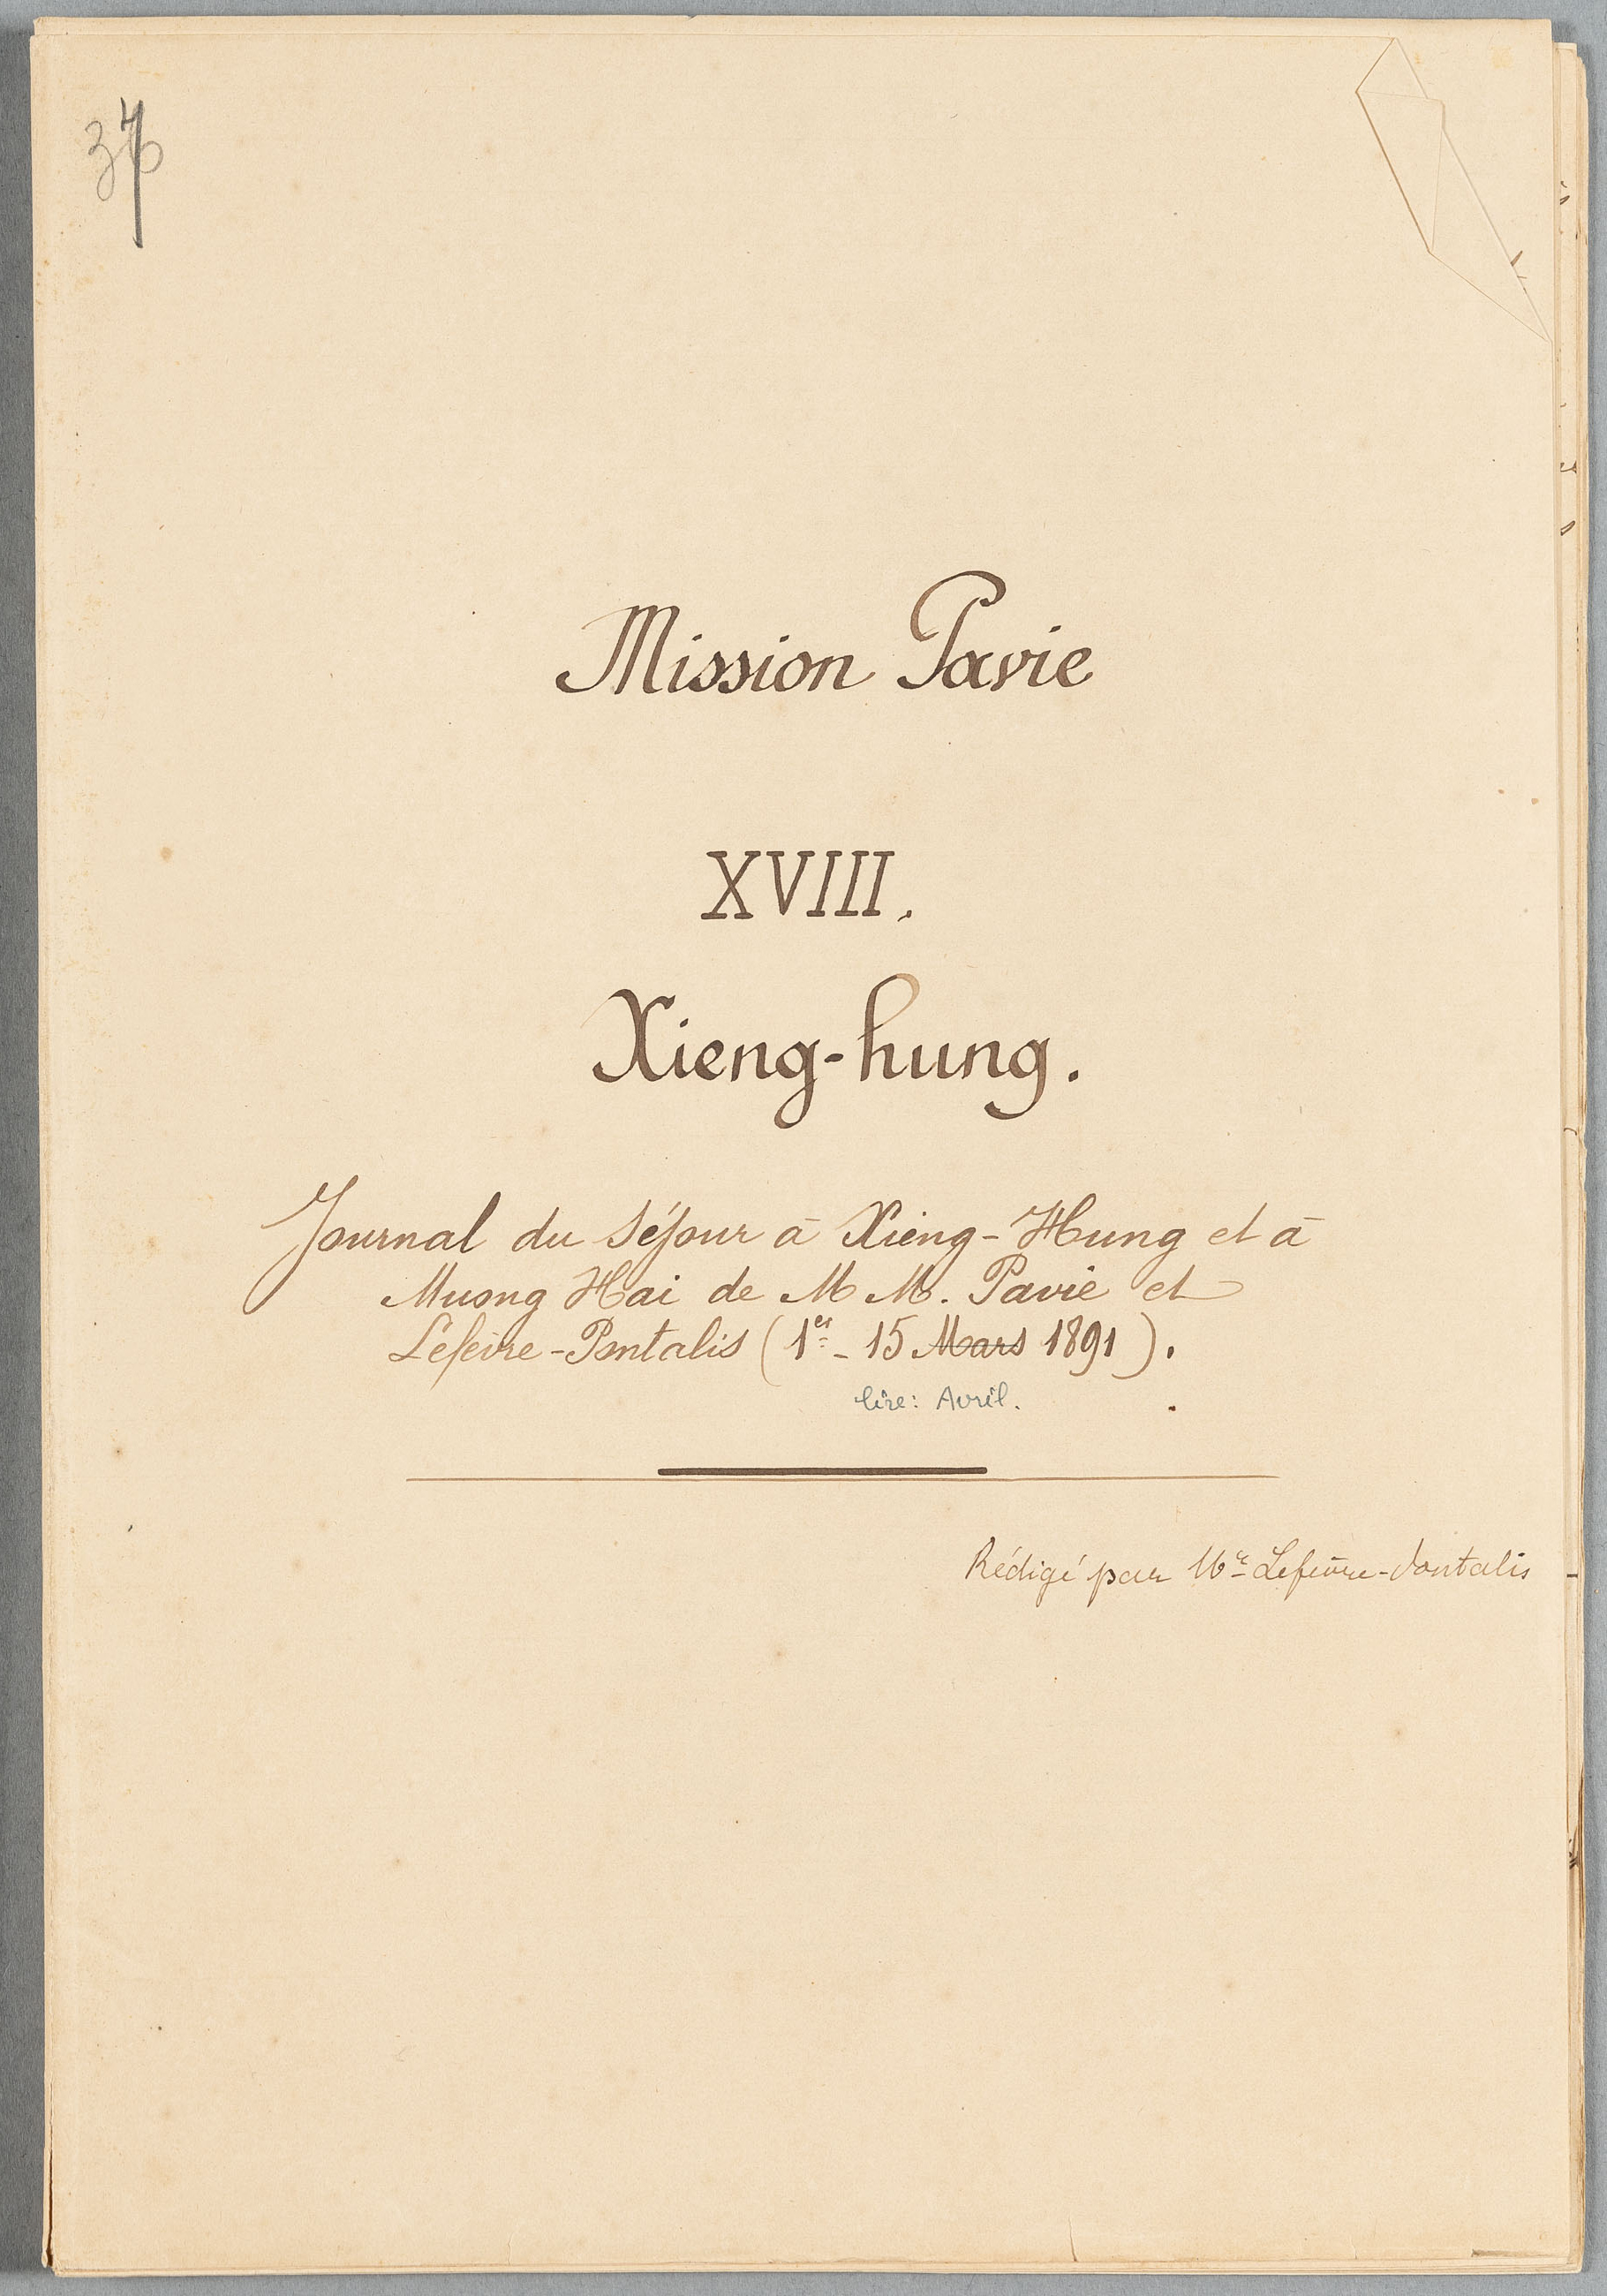 Mission Pavie
XVIII.
Xieng-hung.
Journal du Séjour à Xieng-Hung et à
Muong Hai de M M. Pavie et
Lefèvre-Pontalis (1er - 15 Mars 1891).
lire: Avril.
Rédigé par Mr Lefèvre-Pontalis